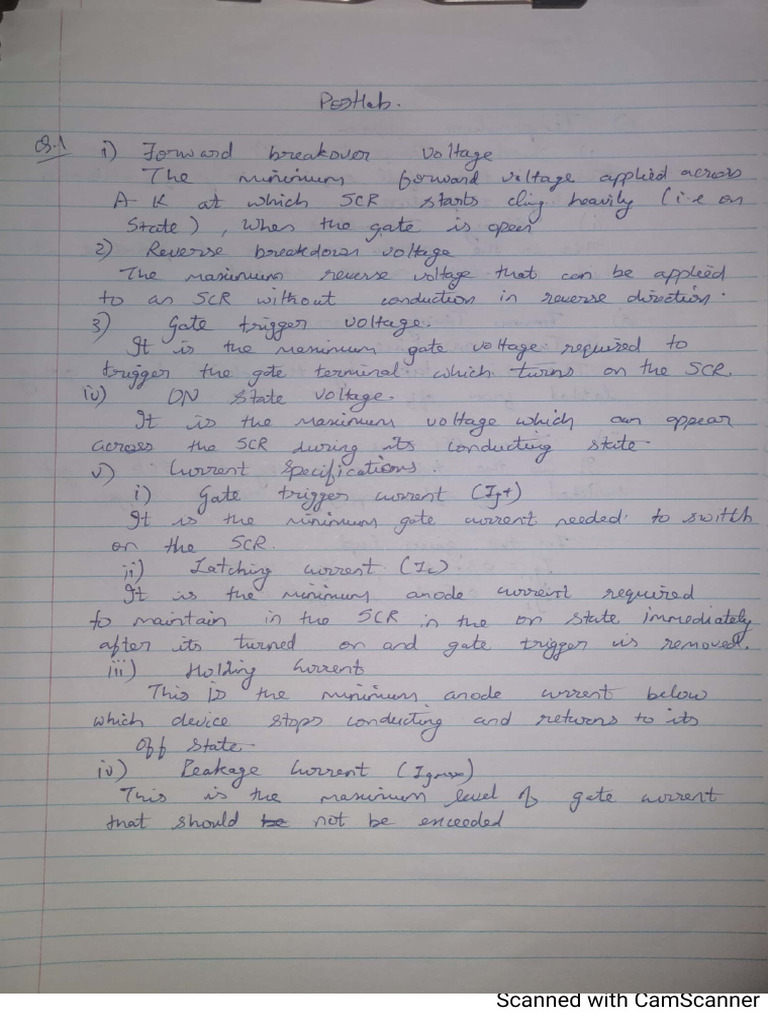 Postlab.
Q.1 i) Forward breakover voltage
The minimum forward voltage applied across
A-K at which SCR starts cling heavily (i.e on
State), when the gate is open
2) Reverse breakdown voltage
The maximum reverse voltage that can be applied
to an SCR without conduction in reverse direction.
3) Gate trigger voltage.
It is the maximum gate voltage required to
trigger the gate terminal which turns on the SCR.
iv) ON state voltage.
It is the maximum voltage which can appear
across the SCR during its conducting state
v) Current Specifications.
i) Gate trigger current (Igt)
It is the minimum gate current needed to switch
on the SCR.
ii) Latching current (IL)
It is the minimum anode current required
to maintain in the SCR in the on state immediately
after its turned on and gate trigger is removed.
iii) Holding Current
This is the minimum anode current below
which device stops conducting and returns to its
off state
iv) Peakage Current (Igmax)
This is the maximum level of gate current
that should be not be exceeded
Scanned with CamScanner